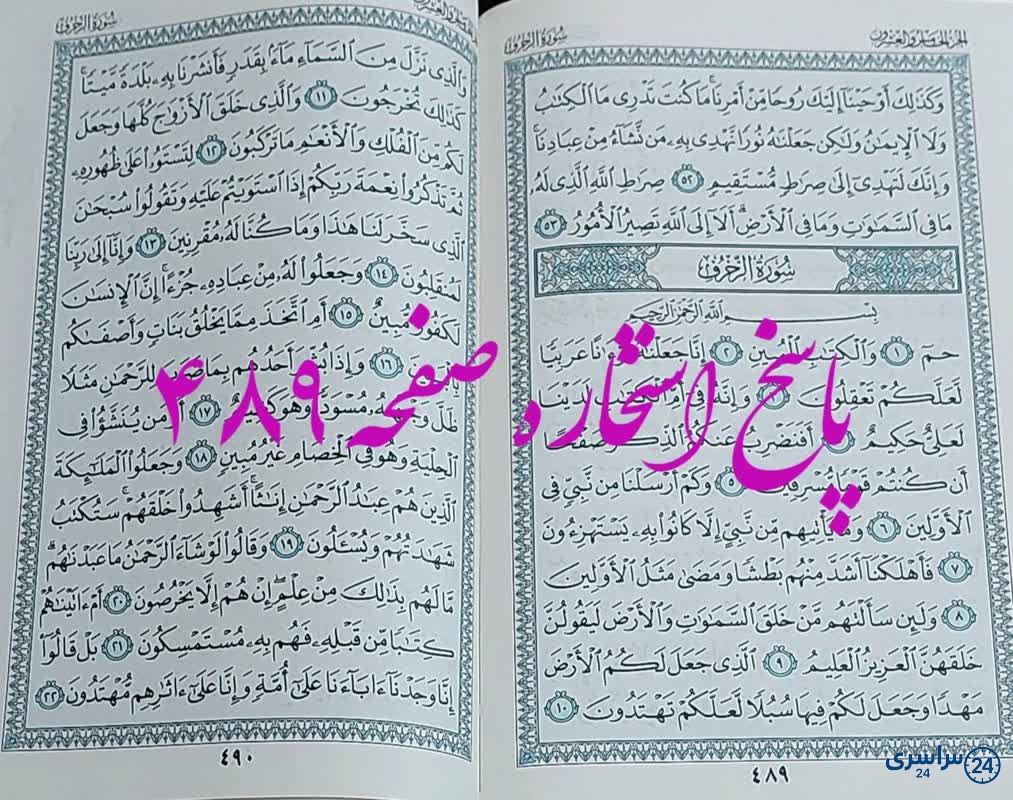 الجزء الخامس والعشرون سُورَةُ الزُّخْرُفِ
وَكَذَٰلِكَ أَوْحَيْنَآ إِلَيْكَ رُوحًا مِّنْ أَمْرِنَا ۚ مَا كُنتَ تَدْرِى مَا ٱلْكِتَٰبُ
وَلَا ٱلْإِيمَٰنُ وَلَٰكِن جَعَلْنَٰهُ نُورًا نَّهْدِى بِهِۦ مَن نَّشَآءُ مِنْ عِبَادِنَا ۚ
وَإِنَّكَ لَتَهْدِىٓ إِلَىٰ صِرَٰطٍ مُّسْتَقِيمٍ ٥٢ صِرَٰطِ ٱللَّهِ ٱلَّذِى لَهُۥ
مَا فِى ٱلسَّمَٰوَٰتِ وَمَا فِى ٱلْأَرْضِ ۗ أَلَآ إِلَى ٱللَّهِ تَصِيرُ ٱلْأُمُورُ ٥٣
سُورَةُ الزُّخْرُفِ
بِسْمِ ٱللَّهِ ٱلرَّحْمَٰنِ ٱلرَّحِيمِ
حمٓ ١ وَٱلْكِتَٰبِ ٱلْمُبِينِ ٢ إِنَّا جَعَلْنَٰهُ قُرْءَٰنًا عَرَبِيًّا
لَّعَلَّكُمْ تَعْقِلُونَ ٣ وَإِنَّهُۥ فِىٓ أُمِّ ٱلْكِتَٰبِ لَدَيْنَا
لَعَلِىٌّ حَكِيمٌ ٤ أَفَنَضْرِبُ عَنكُمُ ٱلذِّكْرَ صَفْحًا
أَن كُنتُمْ قَوْمًا مُّسْرِفِينَ ٥ وَكَمْ أَرْسَلْنَا مِن نَّبِىٍّ فِى
ٱلْأَوَّلِينَ ٦ وَمَا يَأْتِيهِم مِّن نَّبِىٍّ إِلَّا كَانُوا۟ بِهِۦ يَسْتَهْزِءُونَ
٧ فَأَهْلَكْنَآ أَشَدَّ مِنْهُم بَطْشًا وَمَضَىٰ مَثَلُ ٱلْأَوَّلِينَ
٨ وَلَئِن سَأَلْتَهُم مَّنْ خَلَقَ ٱلسَّمَٰوَٰتِ وَٱلْأَرْضَ لَيَقُولُنَّ
خَلَقَهُنَّ ٱلْعَزِيزُ ٱلْعَلِيمُ ٩ ٱلَّذِى جَعَلَ لَكُمُ ٱلْأَرْضَ
مَهْدًا وَجَعَلَ لَكُمْ فِيهَا سُبُلًا لَّعَلَّكُمْ تَهْتَدُونَ ١٠
٤٨٩
سُورَةُ الزُّخْرُفِ
وَٱلَّذِى نَزَّلَ مِنَ ٱلسَّمَآءِ مَآءًۢ بِقَدَرٍ فَأَنشَرْنَا بِهِۦ بَلْدَةً مَّيْتًا ۚ
كَذَٰلِكَ تُخْرَجُونَ ١١ وَٱلَّذِى خَلَقَ ٱلْأَزْوَٰجَ كُلَّهَا وَجَعَلَ
لَكُم مِّنَ ٱلْفُلْكِ وَٱلْأَنْعَٰمِ مَا تَرْكَبُونَ ١٢ لِتَسْتَوُۥا۟ عَلَىٰ ظُهُورِهِۦ
ثُمَّ تَذْكُرُوا۟ نِعْمَةَ رَبِّكُمْ إِذَا ٱسْتَوَيْتُمْ عَلَيْهِ وَتَقُولُوا۟ سُبْحَٰنَ
ٱلَّذِى سَخَّرَ لَنَا هَٰذَا وَمَا كُنَّا لَهُۥ مُقْرِنِينَ ١٣ وَإِنَّآ إِلَىٰ رَبِّنَا
لَمُنقَلِبُونَ ١٤ وَجَعَلُوا۟ لَهُۥ مِنْ عِبَادِهِۦ جُزْءًا ۚ إِنَّ ٱلْإِنسَٰنَ
لَكَفُورٌ مُّبِينٌ ١٥ أَمِ ٱتَّخَذَ مِمَّا يَخْلُقُ بَنَاتٍ وَأَصْفَىٰكُم
بِٱلْبَنِينَ ١٦ وَإِذَا بُشِّرَ أَحَدُهُم بِمَا ضَرَبَ لِلرَّحْمَٰنِ مَثَلًا
ظَلَّ وَجْهُهُۥ مُسْوَدًّا وَهُوَ كَظِيمٌ ١٧ أَوَمَن يُنَشَّؤُا۟ فِى
ٱلْحِلْيَةِ وَهُوَ فِى ٱلْخِصَامِ غَيْرُ مُبِينٍ ١٨ وَجَعَلُوا۟ ٱلْمَلَٰٓئِكَةَ
ٱلَّذِينَ هُمْ عِبَٰدُ ٱلرَّحْمَٰنِ إِنَٰثًا ۚ أَشَهِدُوا۟ خَلْقَهُمْ ۚ سَتُكْتَبُ
شَهَٰدَتُهُمْ وَيُسْـَٔلُونَ ١٩ وَقَالُوا۟ لَوْ شَآءَ ٱلرَّحْمَٰنُ مَا عَبَدْنَٰهُم ۗ
مَّا لَهُم بِذَٰلِكَ مِنْ عِلْمٍ ۖ إِنْ هُمْ إِلَّا يَخْرُصُونَ ٢٠ أَمْ ءَاتَيْنَٰهُمْ
كِتَٰبًا مِّن قَبْلِهِۦ فَهُم بِهِۦ مُسْتَمْسِكُونَ ٢١ بَلْ قَالُوٓا۟
إِنَّا وَجَدْنَآ ءَابَآءَنَا عَلَىٰٓ أُمَّةٍ وَإِنَّا عَلَىٰٓ ءَاثَٰرِهِم مُّهْتَدُونَ ٢٢
٤٩٠
پاسخ استخاره صفحه ۴۸۹
سراسری 24
24